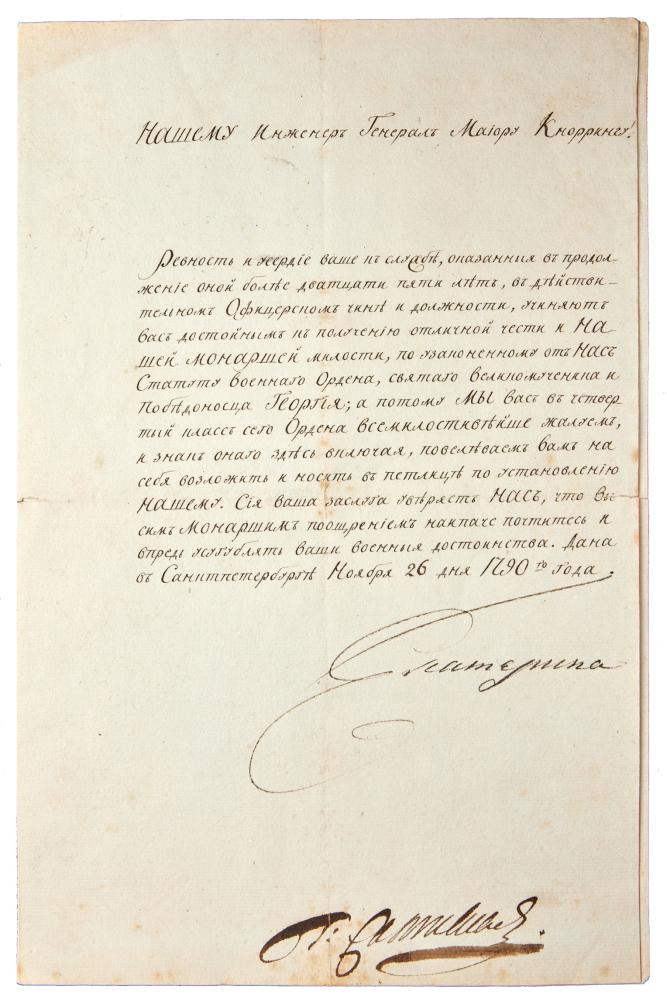 НАШЕМУ Инженеръ Генералъ Маіору Кноррингу!
Ревность и усердіе ваше къ службѣ, оказанныя въ продол-
женіе оной болѣе двадцати пяти лѣтъ, въ дѣйстви-
тельномъ Офицерскомъ чинѣ и должности, учиняютъ
васъ достойнымъ къ полученію отличной чести и НА-
ШЕЙ МОНАРШЕЙ милости, по узаконенному отъ НАСЪ
Статуту военнаго Ордена, святаго великомученика и
Побѣдоносца ГЕОРГІЯ; а потому МЫ васъ въ четвер
тый классъ сего Ордена всемилостивѣйше жалуемъ,
и знакъ онаго здѣсь включая, повелѣваемъ вамъ на
себя возложить и носить въ петлицѣ по установленію
НАШЕМУ. Сія ваша заслуга увѣряетъ НАСЪ, что вы
симъ МОНАРШИМЪ поощреніемъ наипаче почтитесь и
впредь усугублять ваши военныя достоинства. Дана
въ Санктпетербургѣ Ноября 26 дня 1790 го года.
Екатерина
Г: Салтыковъ.